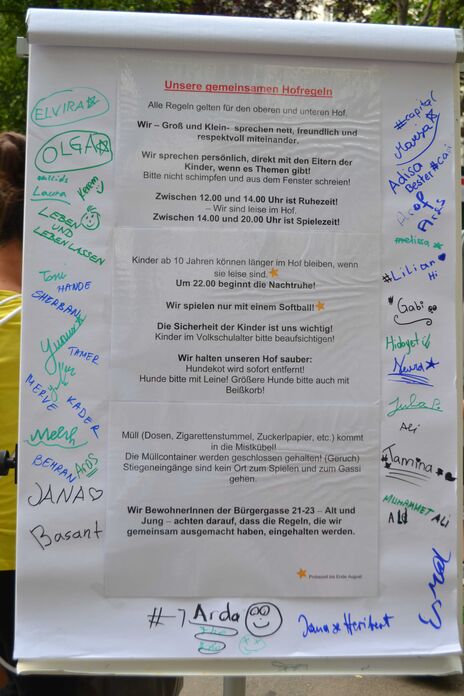 Unsere gemeinsamen Hofregeln
Alle Regeln gelten für den oberen und unteren Hof.
Wir – Groß und Klein- sprechen nett, freundlich und
respektvoll miteinander.
Wir sprechen persönlich, direkt mit den Eltern der
Kinder, wenn es Themen gibt!
Bitte nicht schimpfen und aus dem Fenster schreien!
Zwischen 12.00 und 14.00 Uhr ist Ruhezeit!
– Wir sind leise im Hof.
Zwischen 14.00 und 20.00 Uhr ist Spielezeit!
Kinder ab 10 Jahren können länger im Hof bleiben, wenn
sie leise sind.
Um 22.00 beginnt die Nachtruhe!
Wir spielen nur mit einem Softball!
Die Sicherheit der Kinder ist uns wichtig!
Kinder im Volkschulalter bitte beaufsichtigen!
Wir halten unseren Hof sauber:
Hundekot wird sofort entfernt!
Hunde bitte mit Leine! Größere Hunde bitte auch mit
Beißkorb!
Müll (Dosen, Zigarettenstummel, Zuckerlpapier, etc.) kommt
in die Mistkübel!
Die Müllcontainer werden geschlossen gehalten! (Geruch)
Stiegeneingänge sind kein Ort zum Spielen und zum Gassi
gehen.
Wir BewohnerInnen der Bürgergasse 21-23 – Alt und
Jung – achten darauf, dass die Regeln, die wir
gemeinsam ausgemacht haben, eingehalten werden.
Probezeit bis Ende August
ELVIRA
OLGA
Laura
Kerem
LEBEN
UND
LEBEN LASSEN
Toni
HANDE
SHERBAN
Yunus
TAMER
MERVE
KADER
Melih
BEHRAN
ARDS
JANA
Basant
#capital
Adisa
Bester #casi
#melissa
#Lilian
Hi
#Gabi
Hidayet
Nevra
Jula
Ali
#Jamina
MUHAMMET ALI
Ald
Esma
#7 Arda
Jana Heribert